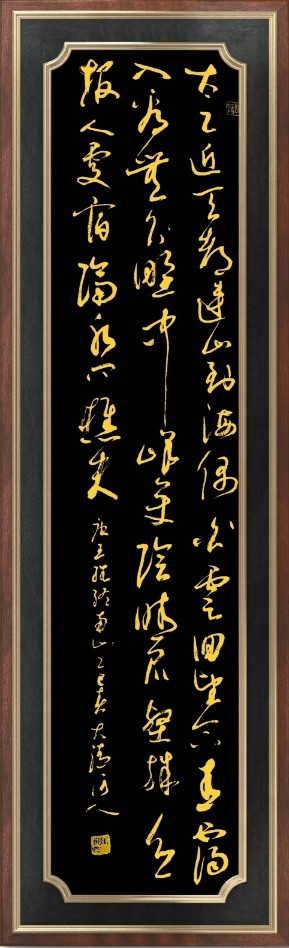 太乙近天都連山到海隅白雲回望合青靄
入看無分野中峰變陰晴眾壑殊欲
投人處宿隔水問樵夫
唐王維終南山乙巳春大